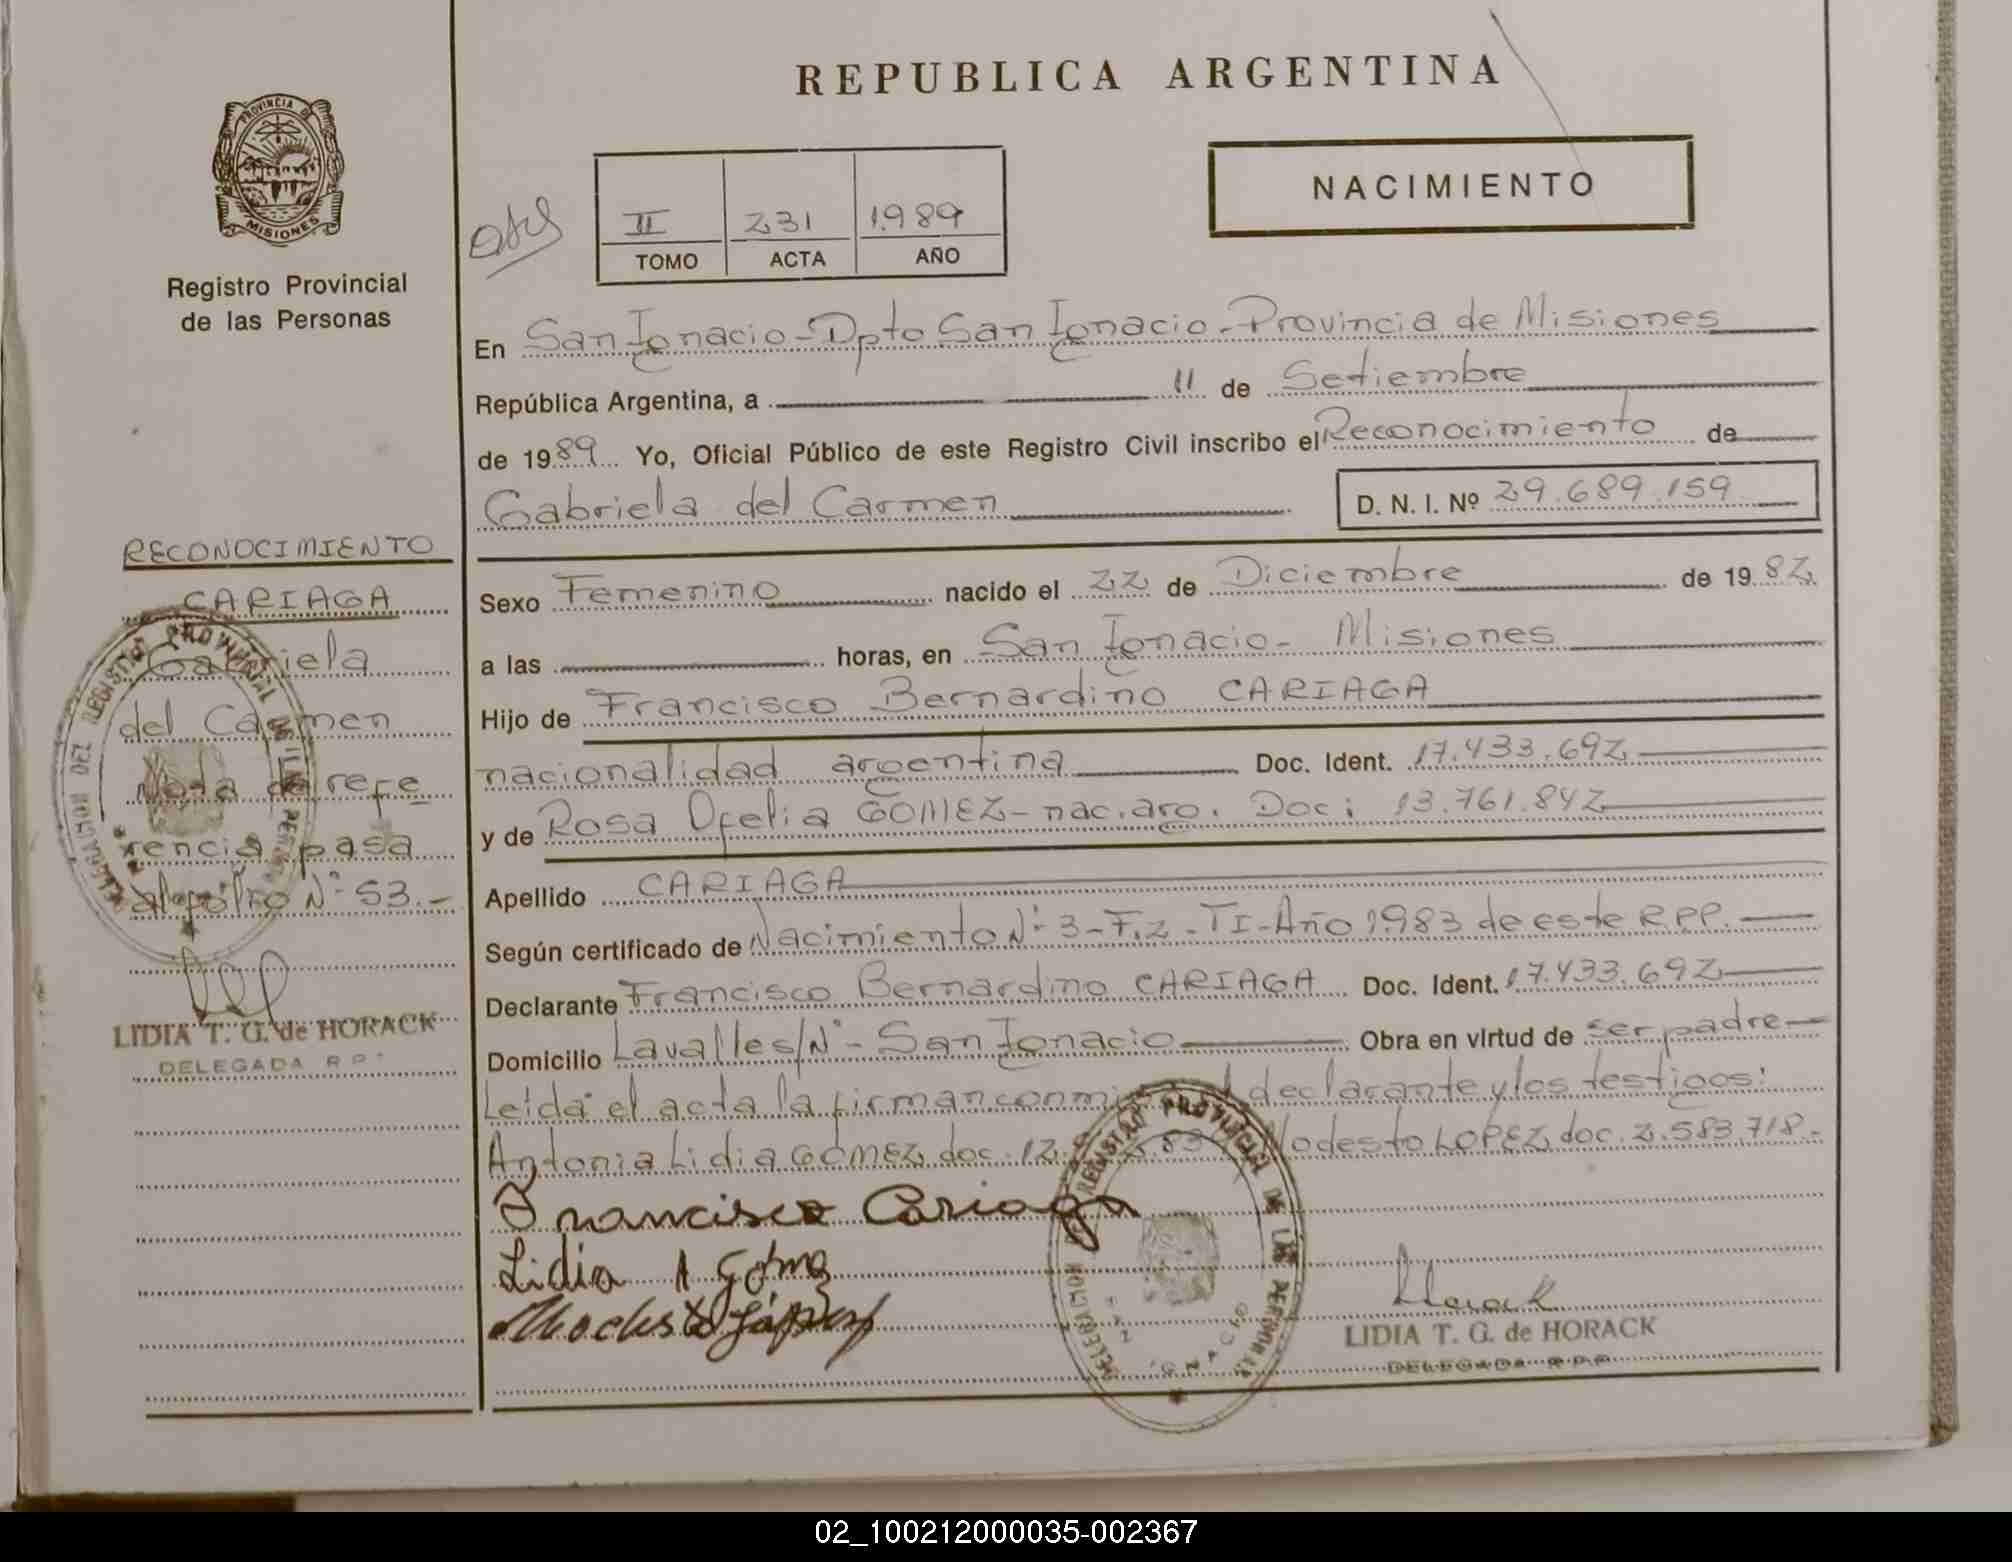 REPUBLICA ARGENTINA
PROVINCIA DE
MISIONES
Registro Provincial
de las Personas
NACIMIENTO
II 231 1989
TOMO ACTA AÑO
En San Ignacio - Dpto San Ignacio - Provincia de Misiones
República Argentina, a 11 de Setiembre
de 1989 Yo, Oficial Público de este Registro Civil inscribo el Reconocimiento de
Gabriela del Carmen D. N. I. Nº 29.689.159
Sexo Femenino nacido el 22 de Diciembre de 1982
a las horas, en San Ignacio - Misiones
Hijo de Francisco Bernardino CARIAGA
nacionalidad argentina Doc. Ident. 17.433.692
y de Rosa Ofelia GOMEZ - nac. arg. Doc: 13.761.842
Apellido CARIAGA
Según certificado de Nacimiento Nº 3 - F.2 - TI - Año 1983 de este R.P.P.
Declarante Francisco Bernardino CARIAGA Doc. Ident. 17.433.692
Domicilio Lavalle s/Nº - San Ignacio Obra en virtud de ser padre
Leida el acta la firman conmigo el declarante y los testigos:
Antonia Lidia GOMEZ doc. 12. Modesto LOPEZ doc. 2.583.718.-
Francisco Cariaga
Lidia A Gómez
Modesto López
LIDIA T. G. de HORACK
DELEGADA R.P.P.
RECONOCIMIENTO
CARIAGA
Gabriela
del Carmen
Nota de refe
rencia pasa
al folio Nº 53.-
LIDIA T. G. de HORACK
DELEGADA R.P.
02_100212000035-002367